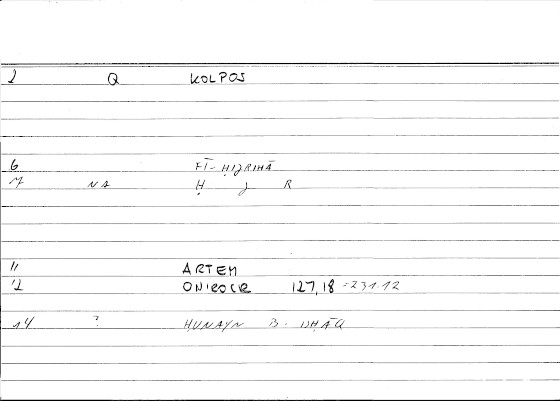 2 Q KOLPOS
6 FĪ-ḤIJRIHĀ
7 NA Ḥ J R
11 ARTEM
12 ONIROCR 127,18 = 231.12
14 ? ḤUNAYN B. ISḤĀQ